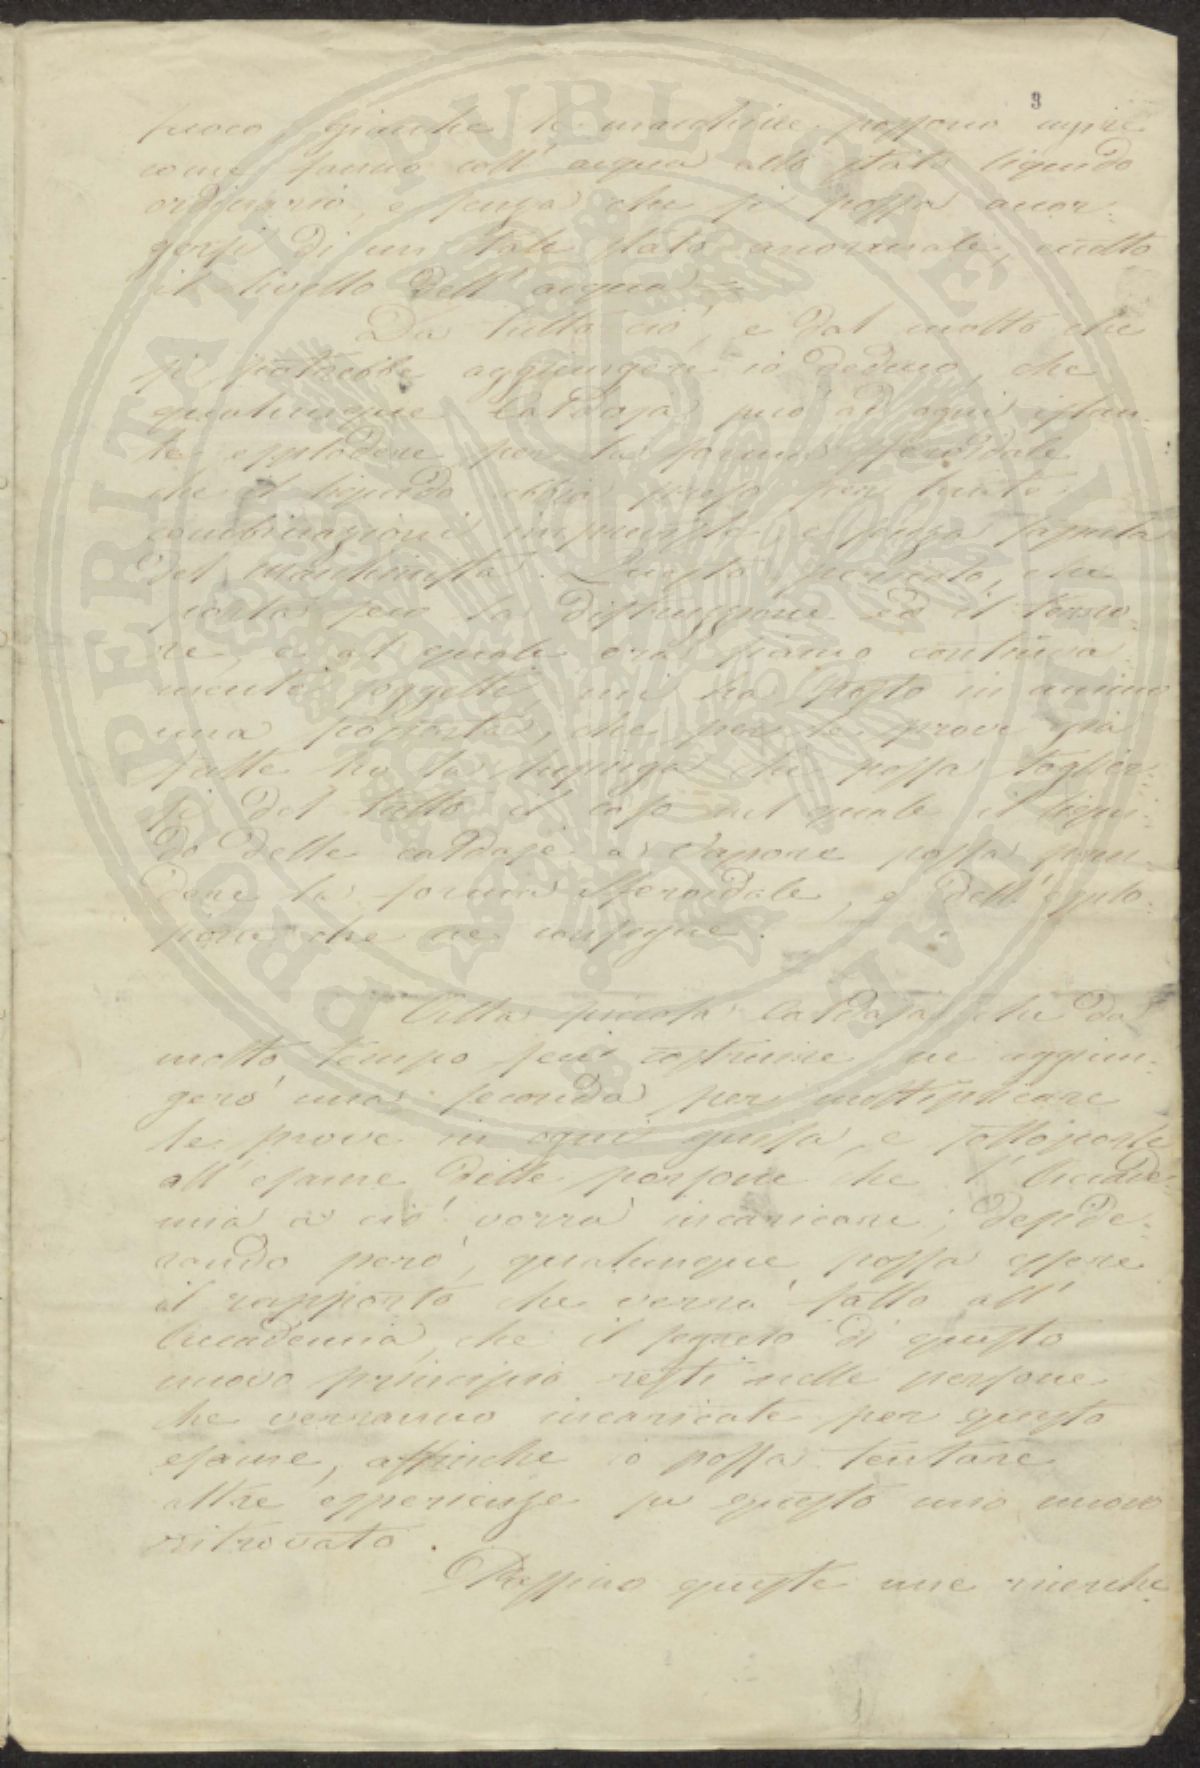 3
fuoco, giacche le macchine possono agire
come fanno coll' acqua allo stato liquido
ordinario, e senza che si possa accor-
gersi di un tale stato anormale,
il livello dell' acqua =
Da tutto ciò, e dal molto che
si potrebbe aggiungere io deduco, che
qualunque Caldaja può ad ogni istan-
te esplodere per la forma sferoidale
che il liquido abbia preso per tante
combinazioni impreviste e senza saputa
del Macchinista. Questo pericolo, che
porta seco la distruzzione ed il terro-
re, e al quale ora siamo continua
mente soggetti, mi ha posto in animo
una proposta, che per le prove già
fatte ho la lusinga che possa toglier-
si del tutto il caso nel quale il liqui-
do delle caldaje a vapore possa pren-
dere la forma sferoidale, e dell' esplo-
sione che ne consegue.
Alla piccola Caldaja che da
molto tempo feci costruire ne aggiun-
gerò una seconda per moltiplicare
le prove in ogni guisa, e sottoporle
all' esame delle persone che l' Accade-
mia a ciò vorrà incaricare; deside-
rando però, qualunque possa essere
il rapporto che verrà fatto all'
Accademia, che il segreto di questo
nuovo principio resti nelle persone
che verranno incaricate per questo
esame, affinche io possa tentare
altre esperienze su questo mio nuovo
ritrovato.
queste mie ricerche
PROSPERITATI PVBLICAE AVGENDAE